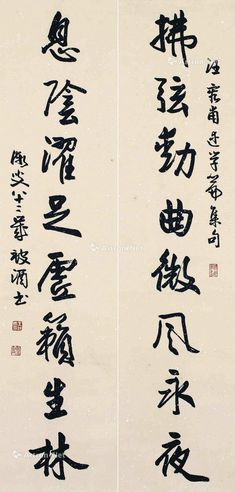 汪容甫述學篇集句
拂弦動曲微風永夜
息陰濯足虛籟生林
八十二歲被酒書